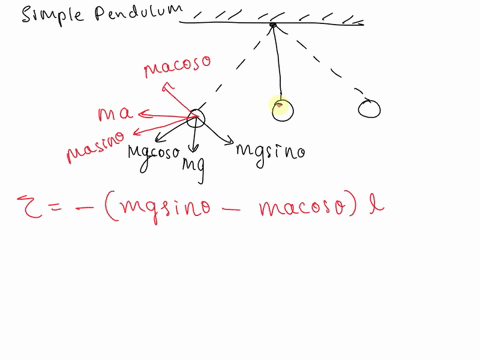 Simple Pendulum
macoso
ma
masino
mgcoso
mg
mgsino
τ = - (mgsino - macoso) l